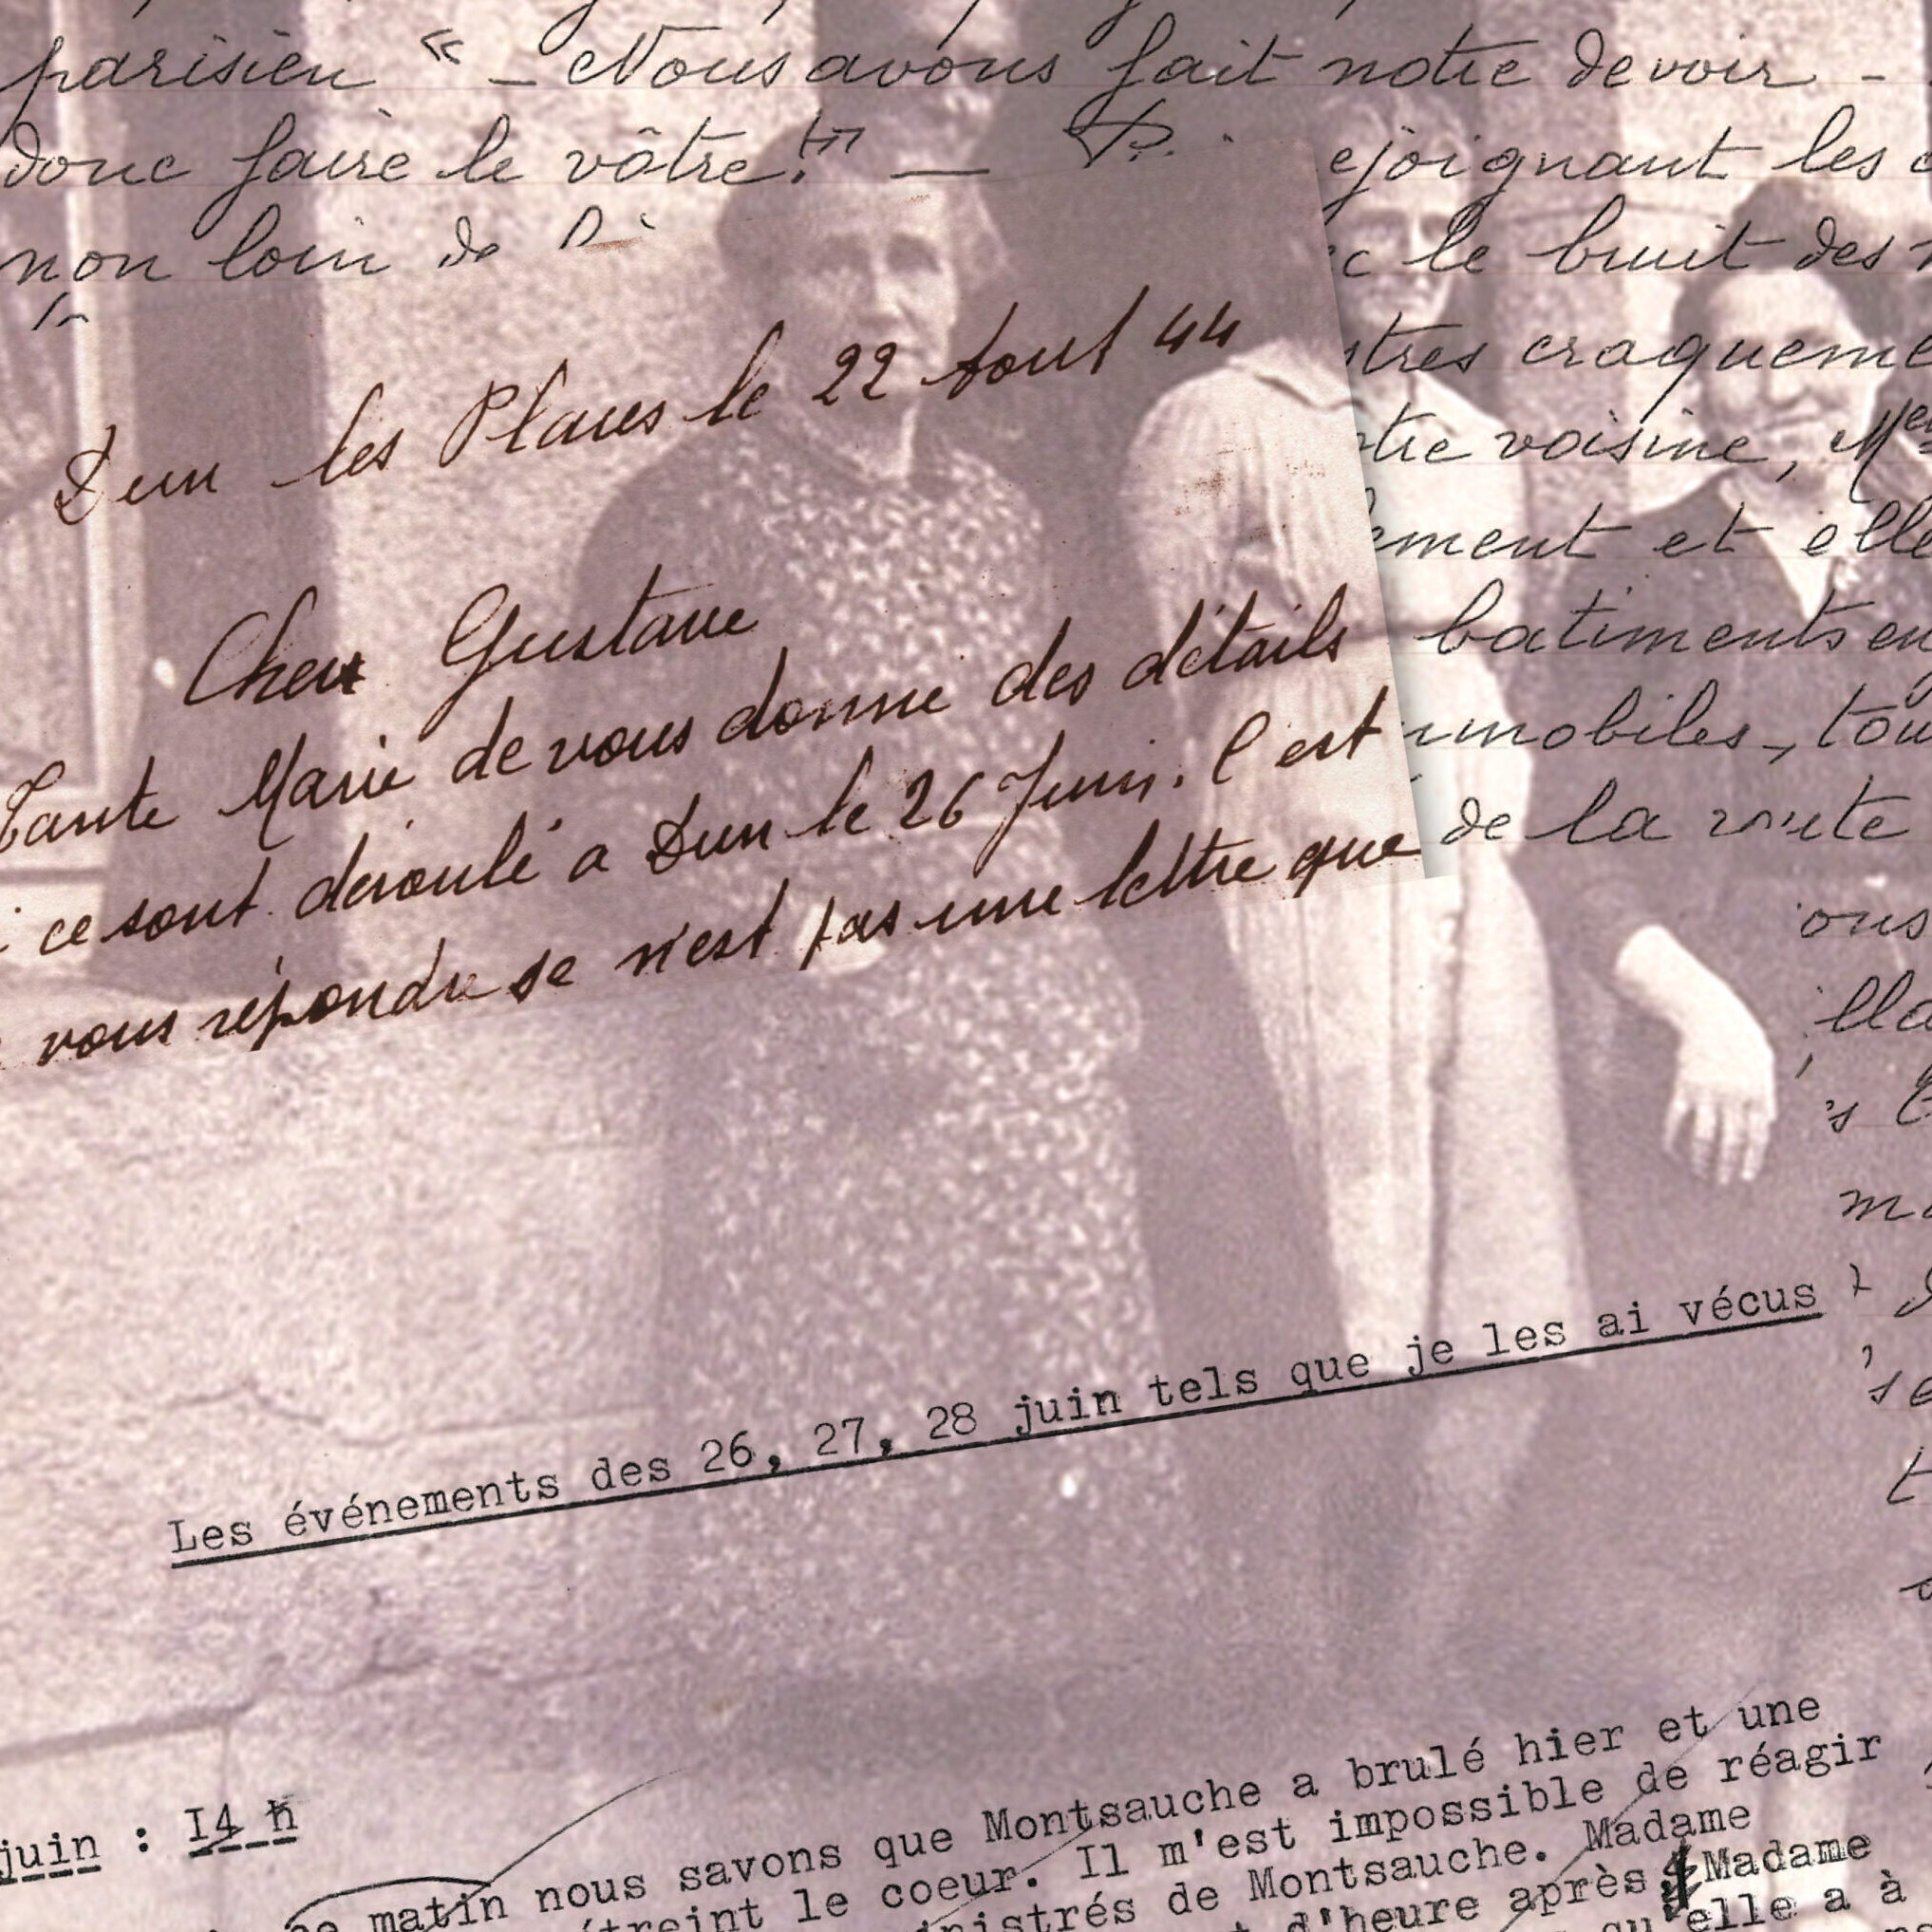 parisien " - Nous avons fait notre devoir -
donc faire le vôtre !" -
ejoignant les
non loin de
le bruit des
stres craqueme
Dun les Places le 22 Aout 44
otre voisine, Me
lement et elle
Cher Gustave
batiments en
Tante Marie de vous donné des détails
immobiles, tou
ce sont déroulé a Dun le 26 Juin. C est
de la route
vous répondre se n'est pas une lettre que
ous
lla
Les événements des 26, 27, 28 juin tels que je les ai vécus
juin : I4 h
matin nous savons que Montsauche a brulé hier et une
étreint le coeur. Il m'est impossible de réagir
inistrés de Montsauche. Madame
d'heure après Madame
qu'elle a à